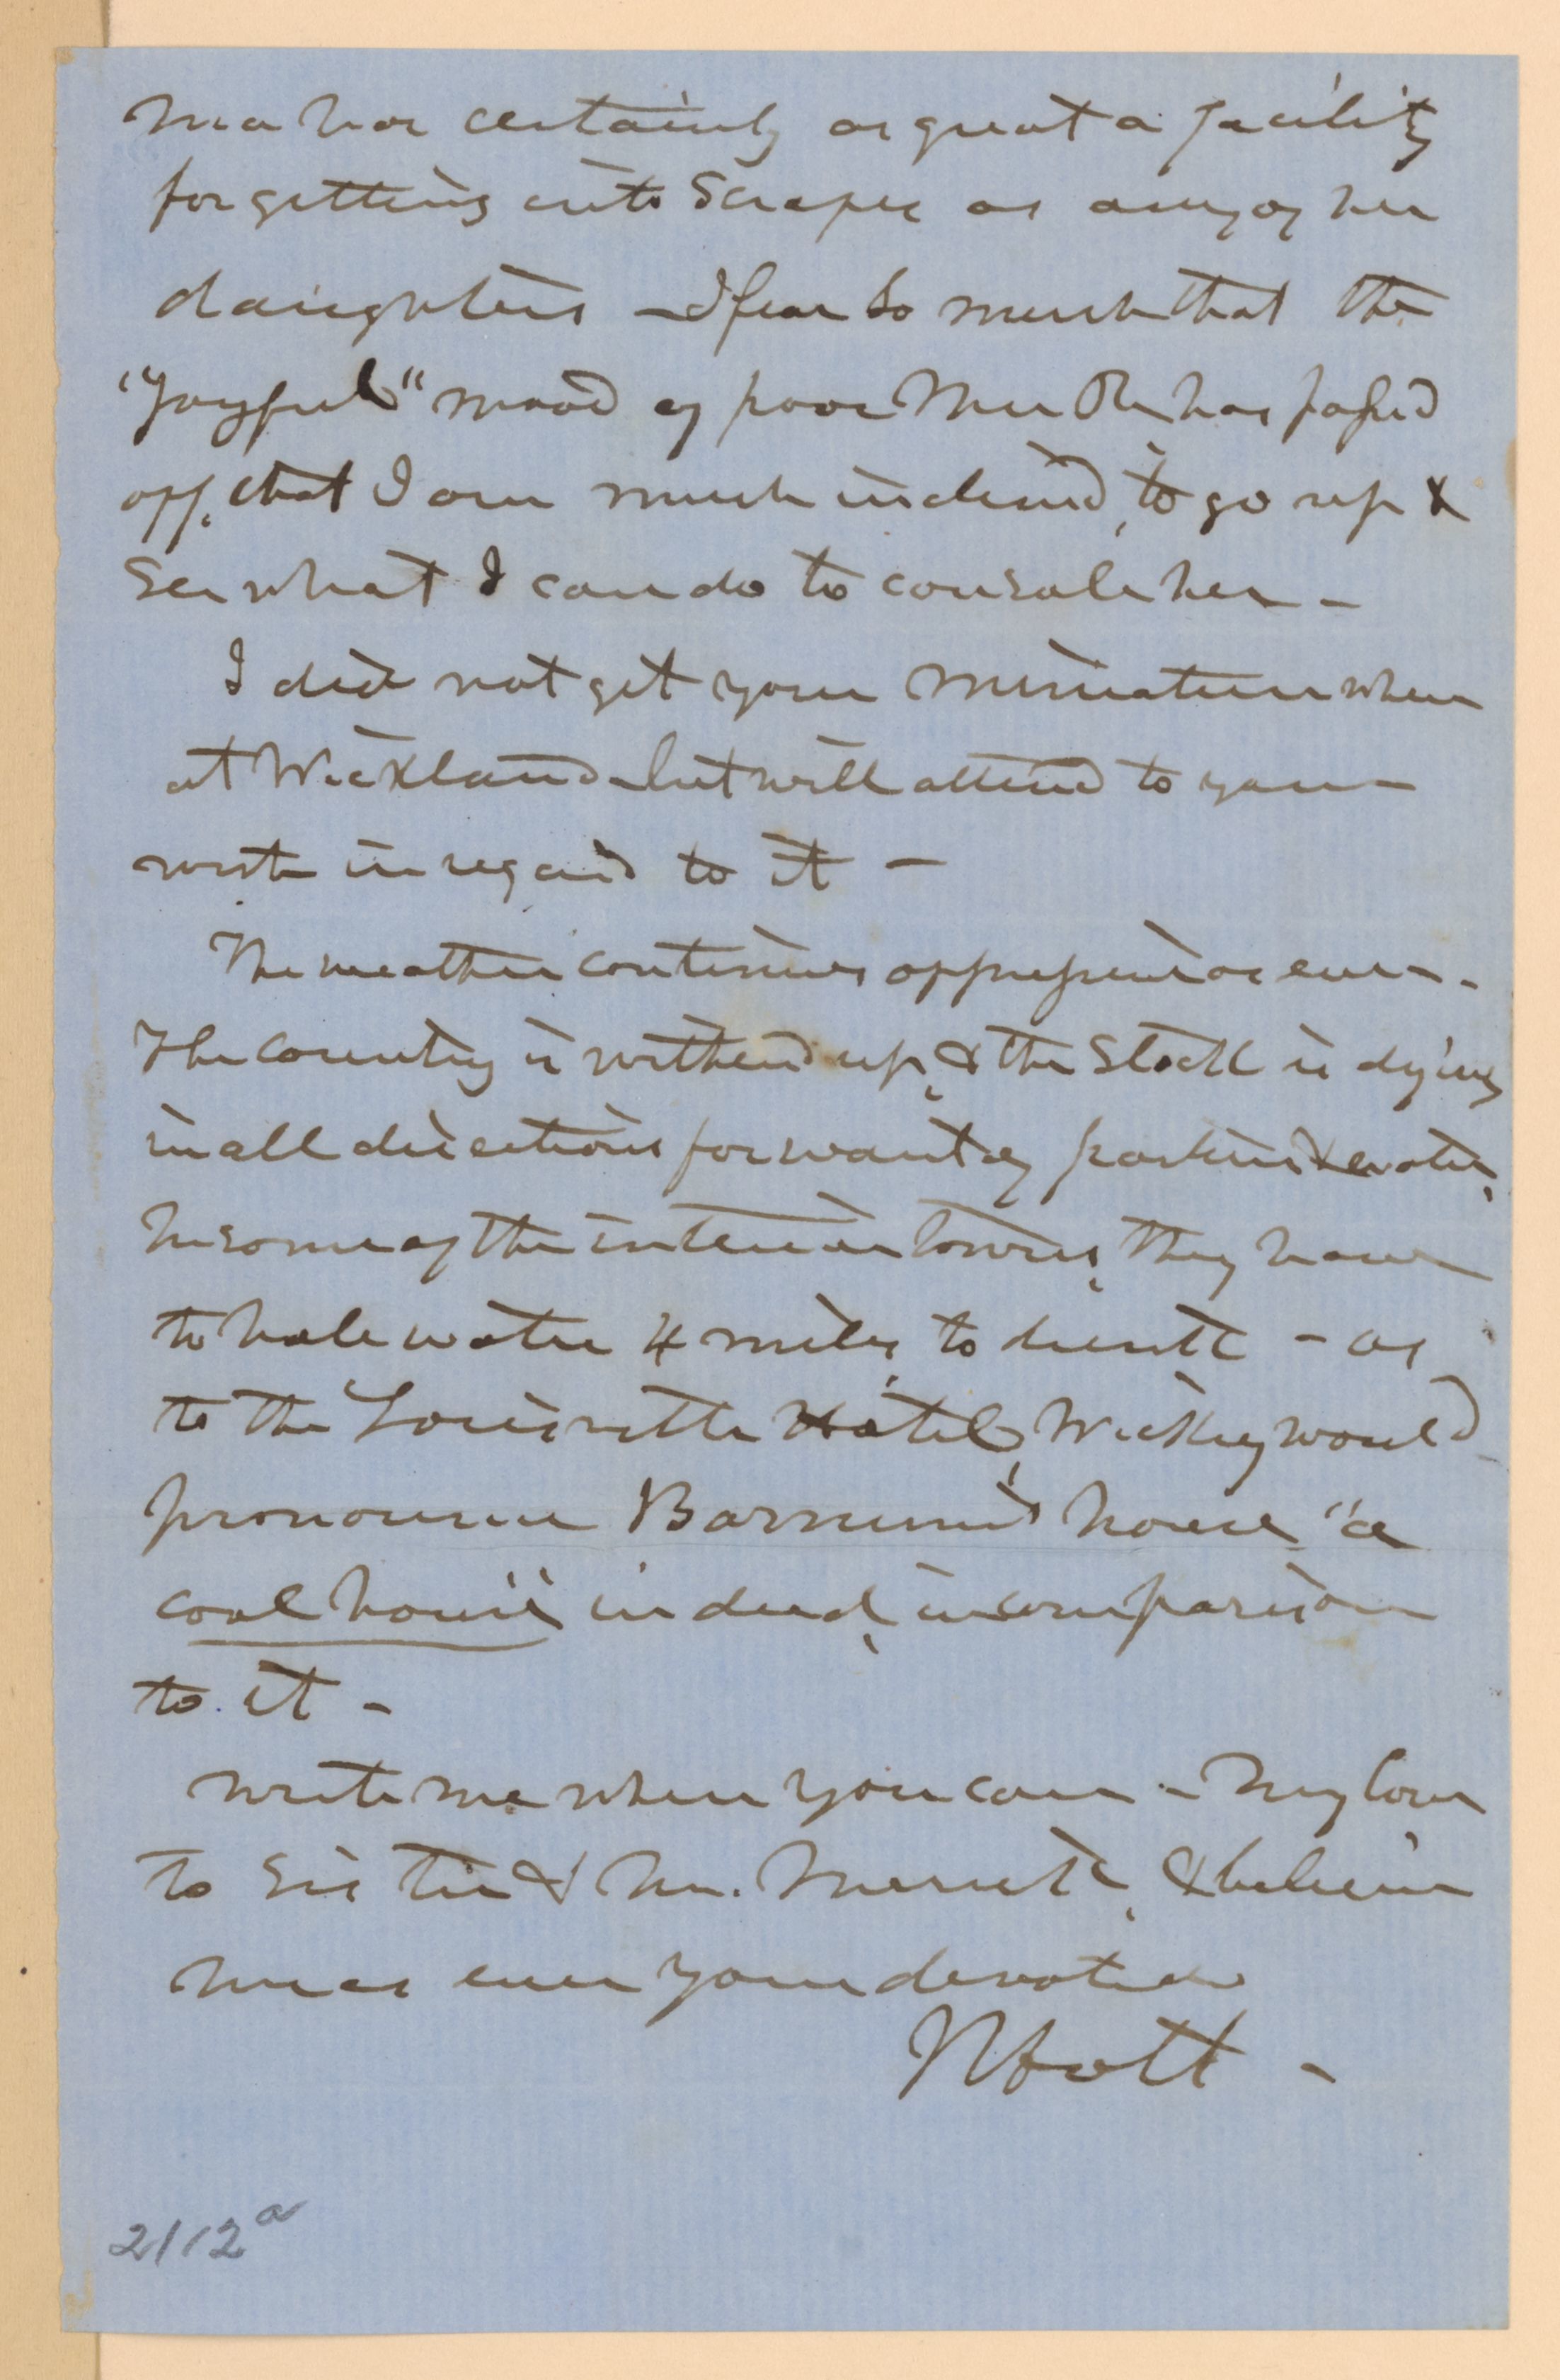 Ma has certainly as great a facility
for getting into scrapes as any of her
daughters – I fear so much that the
"Joyful" mood of poor Mrs R. has passed
off, that I am much inclined, to go up &
see what I can do to console her –
I did not get your miniature when
at Wickland – but will attend to your
wish in regard to it –
The weather continues oppressive as ever –.
The country is withered up, & the stock is dying
in all directions for want of pasture & water,
In some of the interior towns, they have
to hale water 4 miles, to drink – as
to the Louisville Hotel, Wickey would
pronounce Barnum's house "a
cool house" indeed, in comparison
to it –
Write me when you can – My love
to Sister & Mr. Merrick, & believe
me as ever your devoted
J Holt –
2112a